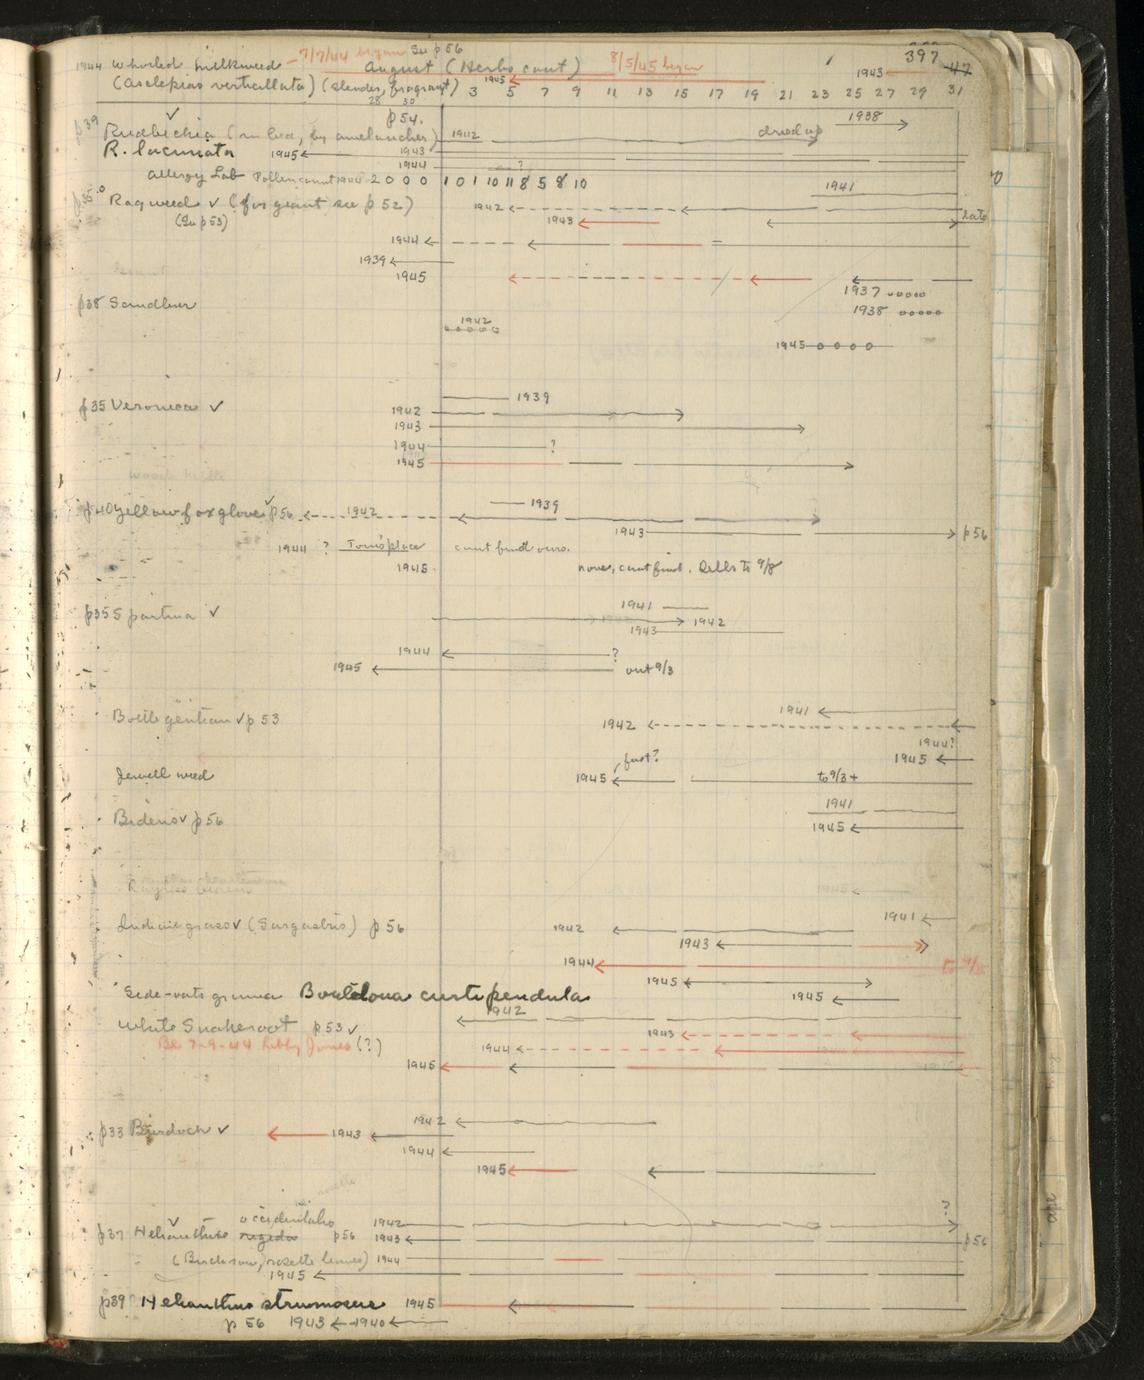 397 47
1944 whorled milkweed - 7/7/44 began See p 56
August (Herbs cont) 8/5/45 began
(Asclepias verticillata) (slender, fragrant) 1945 1943
28 30 3 5 7 9 11 13 15 17 19 21 23 25 27 29 31
p54.
p39 Rudbeckia (in bed, by amelanchier) 1942 dried up 1938
R. laciniata 1945 1943
1944 ?
Allergy Lab Pollen count 1944 - 2 0 0 0 1 0 1 10 11 8 5 8 10
1941
p35 Ragweed ✓ (for giant see p 52) 1942
(See p 53) 1943 late
1944
1939
1945
1937
p38 Sandbur 1938
1942
1945
1939
p35 Veronica ✓ 1942
1943
1944 ?
1945
1939
p40 Yellow foxglove ✓ p56 1942
1943 p56
1944 ? Tom's place can't find ours.
1945 none, can't find. Bells to 9/8
1941
p35 Spartina ✓ 1942
1943
1944 ?
1945 out 9/3
1941
Bottle gentian ✓ p 53 1942
1944?
1945
just?
Jewell weed 1945 to 9/3+
1941
Bidens ✓ p 56 1945
1941
Indian grass ✓ (Sorgastris) p 56 1942
1943
1944
1945
Side-oats grama Bouteloua curtipendula 1945
1942
White Snakeroot p 53 ✓ 1943
Be 7-9-44 Libby Jones (?) 1944
1945
1942
p33 Burdock ✓ 1943
1944
1945
occidentalis 1942 ?
p37 Helianthus rigidus p56 1943 p56
1944
1945
p39 Helianthus strumosus 1945
p 56 1943 1940